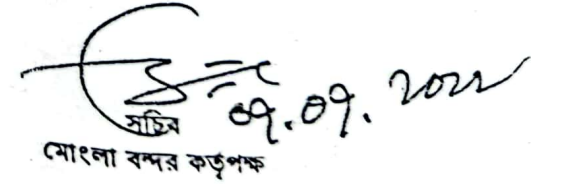 ০৭.০৭.২০২২
সচিব
মোংলা বন্দর কর্তৃপক্ষ